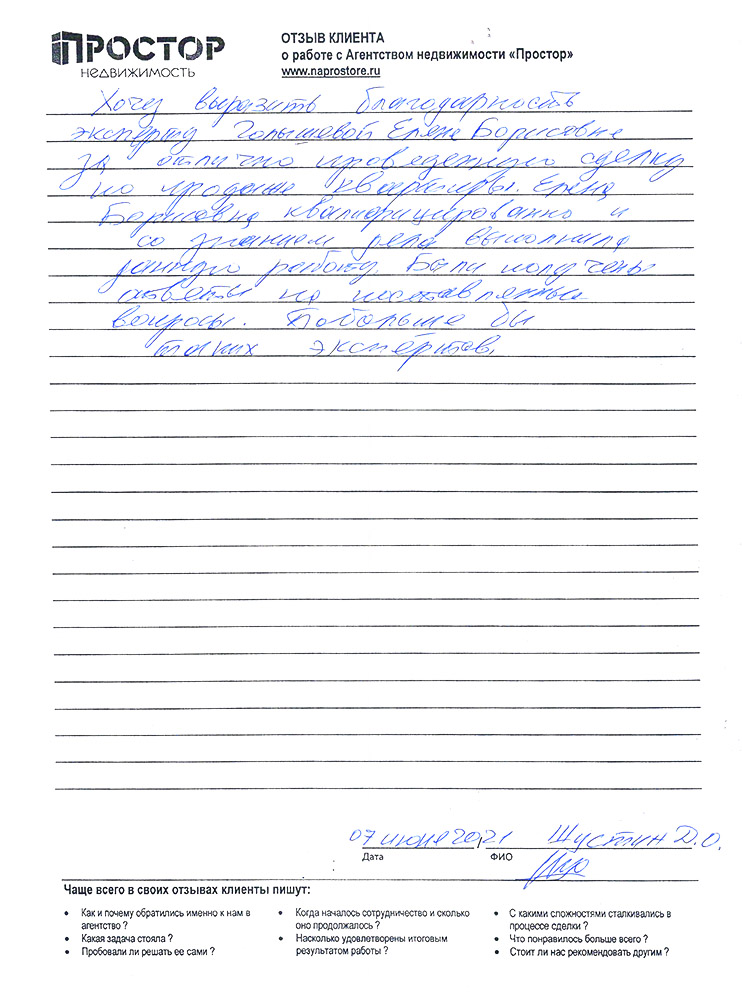 ПРОСТОР
НЕДВИЖИМОСТЬ
ОТЗЫВ КЛИЕНТА
о работе с Агентством недвижимости «Простор»
www.naprostore.ru
Хочу выразить благодарность
эксперту Голышевой Елене Борисовне
за отлично проведенную сделку
по продаже квартиры. Елена
Борисовна квалифицированно и
со знанием дела выполнила
данную работу. Были получены
ответы на поставленные
вопросы. Побольше бы
таких экспертов.
07 июня 2021 Шустин Д.О.
Дата ФИО
Чаще всего в своих отзывах клиенты пишут:
• Как и почему обратились именно к нам в
агентство ?
• Какая задача стояла ?
• Пробовали ли решать ее сами ?
• Когда началось сотрудничество и сколько
оно продолжалось ?
• Насколько удовлетворены итоговым
результатом работы ?
• С какими сложностями сталкивались в
процессе сделки ?
• Что понравилось больше всего ?
• Стоит ли нас рекомендовать другим ?